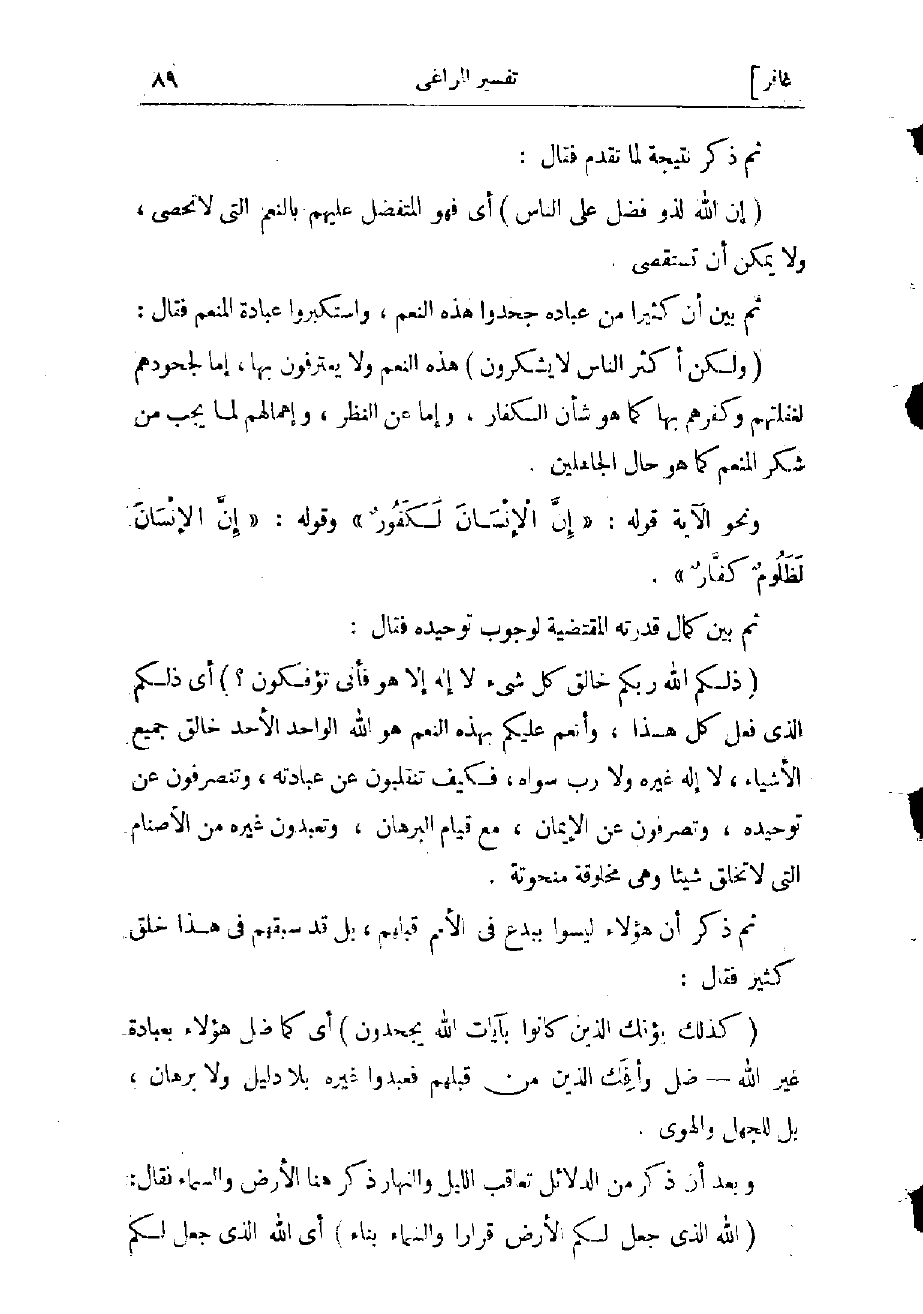 غافر ] تفسير المراغى ٨٩
ثم ذكر نتيجة لما تقدم فقال :
( إن الله لذو فضل على الناس ) أى فهو المتفضل عليهم بالنعم التى لاتحصى ،
ولا يمكن أن تستقصى .
ثم بين أن كثيرا من عباده جحدوا هذه النعم ، واستكبروا عبادة المنعم فقال :
( ولكن أكثر الناس لايشكرون ) هذه النعم ولا يعترفون بها ، إما لجحودهم
لغفلتهم وكفرهم بها كما هو شأن الكفار ، وإما عن النظر ، وإهمالهم لما يجب من
شكر المنعم كما هو حال الجاهلين .
ونحو الآية قوله : « إِنَّ الْإِنْسَانَ لَكَفُورٌ » وقوله : « إِنَّ الْإِنْسَانَ
لَظَلُومٌ كَفَّارٌ » .
ثم بين كمال قدرته المقتضية لوجوب توحيده فقال :
( ذلكم الله ربكم خالق كل شىء لا إله إلا هو فأنى تؤفكون ؟ ) أى ذلكم
الذى فعل كل هذا ، وأنعم عليكم بهذه النعم هو الله الواحد الأحد خالق جميع
الأشياء ، لا إله غيره ولا رب سواه ، فكيف تنقلبون عن عبادته ، وتنصرفون عن
توحيده ، وتصرفون عن الإيمان ، مع قيام البرهان ، وتعبدون غيره من الأصنام
التى لاتخلق شيئا وهى مخلوقة منحوتة .
ثم ذكر أن هؤلاء ليسوا ببدع فى الأمم قبلهم ، بل قد سبقهم فى هذا خلق
كثير فقال :
( كذلك يؤفك الذين كانوا بآيات الله يجحدون ) أى كما ضل هؤلاء بعبادة
غير الله – ضل وأُفِك الذين من قبلهم فعبدوا غيره بلا دليل ولا برهان ،
بل للجهل والهوى .
وبعد أن ذكر من الدلائل تعاقب الليل والنهار ذكر هنا الأرض والسماء فقال :
( الله الذى جعل لكم الأرض قرارا والسماء بناء ) أى الله الذى جعل لكم